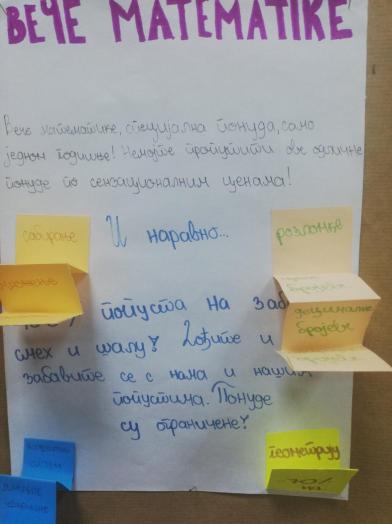 ВЕЧЕ МАТЕМАТИКЕ
Вече математике, специјална понуда, само
једном годишње! Немојте пропустити ове одличне
понуде по сензационалним ценама!
сабирање
И наравно...
разломке
множење
бројеве
попуста на
децималне
бројеве
смех и шалу? Дођите и
забавите се с нама и нашим
попустима. Понуде
су ограничене!
геометрију